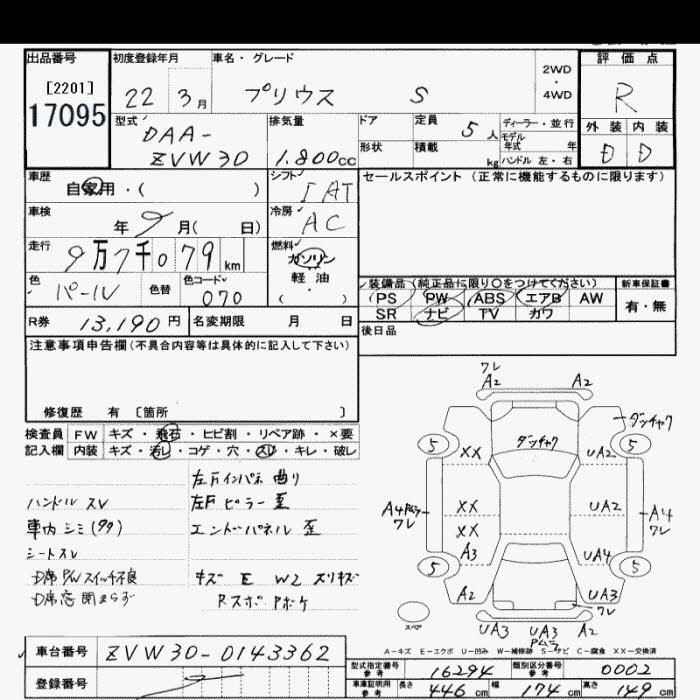 出品番号
[2201]
17095
初度登録年月
22 3月
車名・グレード
プリウス S
2WD
・
4WD
評価点
R
外装 内装
D D
型式
DAA-
ZVW30
排気量
1.800cc
ドア
定員 5人
ディーラー・並行
モデル
年式 年
形状
積載 kg
ハンドル 左・右
車歴
自家用・( )
シフト
IAT
車検
年 9月( 日)
冷房
AC
走行
9万7千079km
燃料
ガソリン
軽油
( )
色
パール
色替
色コード
070
R券 13,190円
名変期限 月 日
セールスポイント(正常に機能するものに限ります)
装備品(純正品に限り○をつけてください)
PS PW ABS エアB AW
SR ナビ TV カワ
新車保証書
有・無
後日品
注意事項申告欄(不具合内容等は具体的に記入して下さい)
修復歴 有 〔箇所 〕
検査員 FW キズ・飛石・ヒビ割・リペア跡・×要
記入欄 内装 キズ・汚レ・コゲ・穴・スレ・キレ・破レ
左Fインパネ 曲り
ハンドル スレ
左Fピラー 歪
車内 シミ(タタ)
エンドパネル 歪
シートスレ
D席 P/Wスイッチ不良
キズ E W2 スリキズ
D席窓 閉まらず
Rスポ Pボケ
ワレ
A2 A2
ダッチャク
ダッチャク
5 5
XX UA2
A4 Pムラ
ワレ
XX UA2
XX
A4
ワレ
A3 UA4
5 5
A2 UA3
ワレ
スペア
UA3 UA3 A2
Pムラ
A－キズ E－エクボ U－凹み W－補修跡 S－サビ C－腐食 XX－交換済
車台番号 ZVW30-0143362
登録番号
型式指定番号
参考
16294
類別区分番号
参考
0002
車庫証明用
参考
長さ 446cm 幅 174cm 高さ 149cm